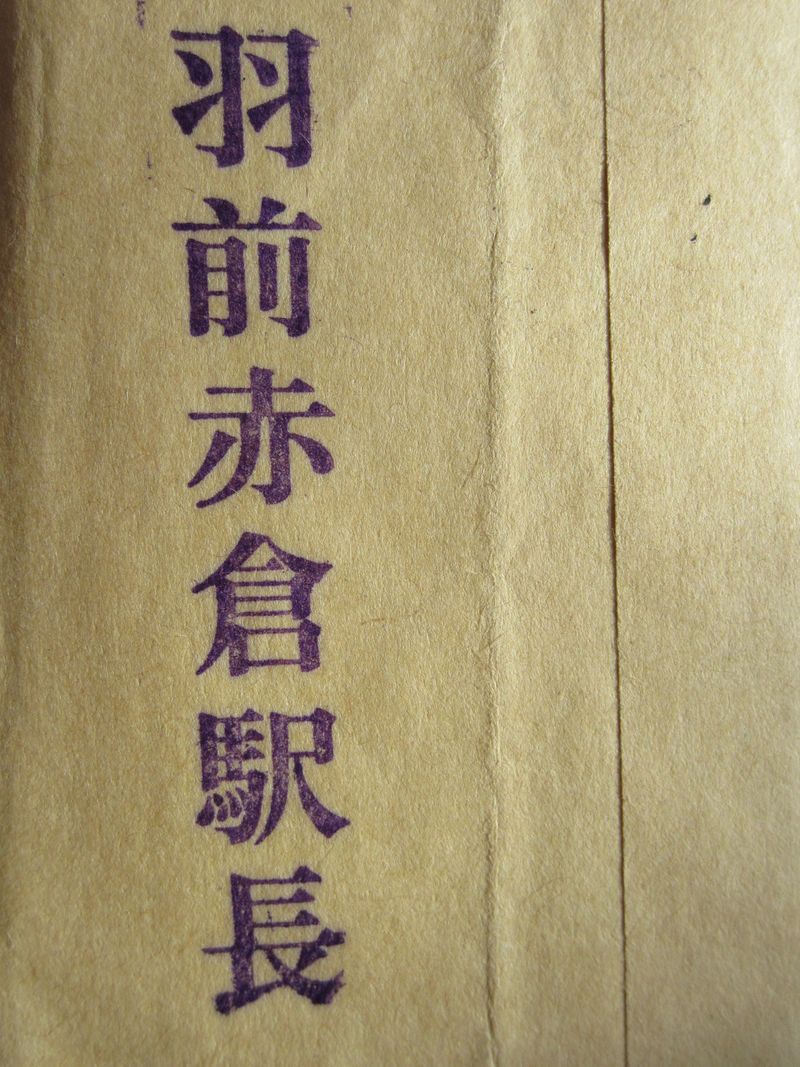 羽前赤倉駅長